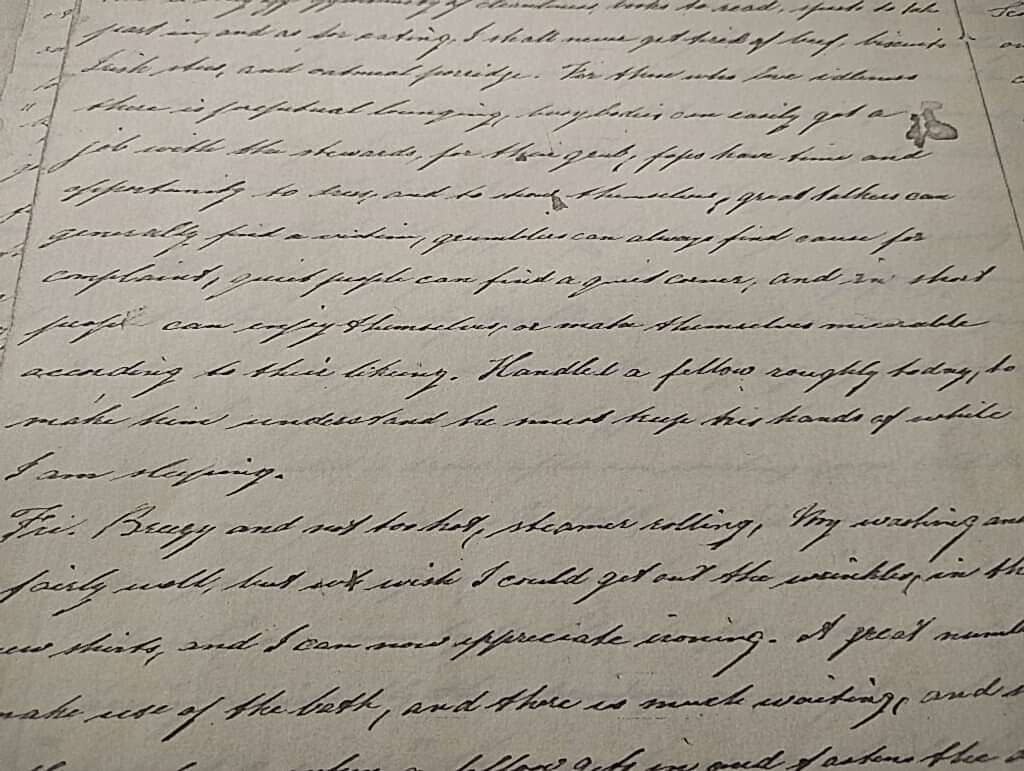 opportunity of cleanliness, books to read, sports to take
part in, and as for eating, I shall never get tired of beef, biscuits
Irish stew, and oatmeal porridge. For those who love idleness
there is perpetual lounging, busybodies can easily get a
job with the stewards, for their grub, fops have time and
opportunity to dress, and to show themselves, great talkers can
generally find a victim, grumblies can always find cause for
complaint, quiet people can find a quiet corner, and in short
people can enjoy themselves, or make themselves miserable
according to their likeing. Handled a fellow roughly today, to
make him understand he must keep his hands of while
I am sleeping.
Fri. Breezy and not too hot, steamer rolling, My washing and
fairly well, but wish I could get out the wrinkles, in the
new shirts, and I can now appreciate ironing. A great number
make use of the bath, and there is much waiting, and
a fellow gets in and fastens the